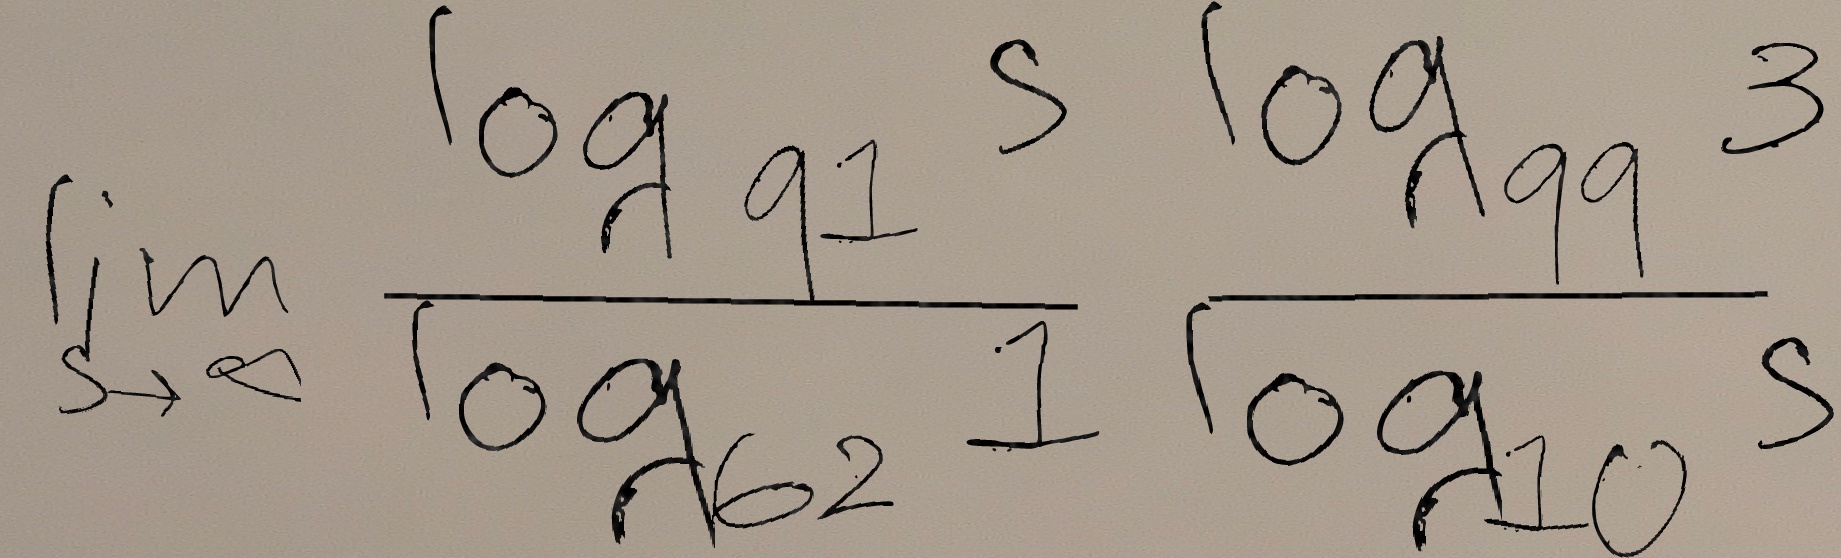 \lim_{s \to \infty} \frac{\log_{91} s}{\log_{62} 1} \frac{\log_{99} 3}{\log_{10} s}